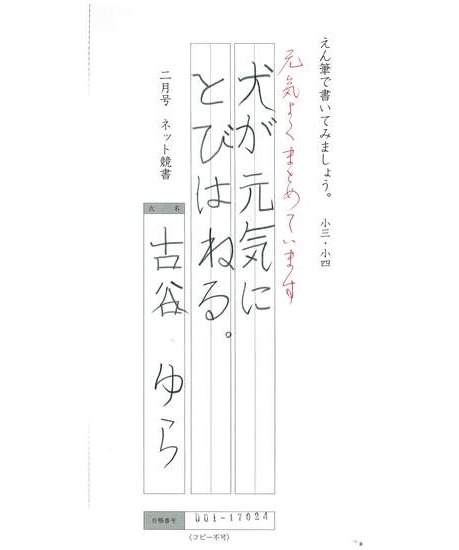 えん筆で書いてみましょう。 小三・小四
元気よくまとめています
犬が元気に
とびはねる。
二月号 ネット競書
氏 名
古谷 ゆら
合格番号 001-17024
(コピー不可)